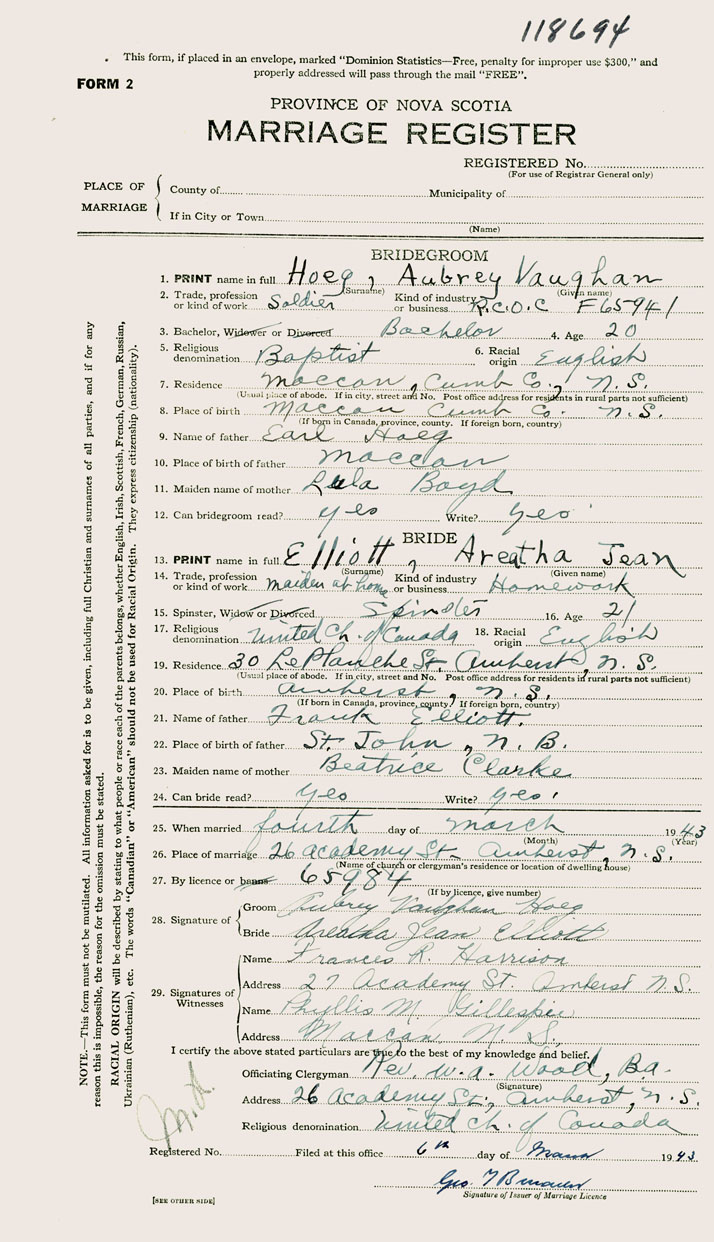 118694
This form, if placed in an envelope, marked "Dominion Statistics—Free, penalty for improper use $300," and
properly addressed will pass through the mail "FREE".
FORM 2
PROVINCE OF NOVA SCOTIA
MARRIAGE REGISTER
REGISTERED No.
(For use of Registrar General only)
PLACE OF MARRIAGE
County of Municipality of
If in City or Town
(Name)
BRIDEGROOM
1. PRINT name in full Hoeg, Aubrey Vaughan
(Surname) (Given name)
2. Trade, profession or kind of work Soldier Kind of industry or business R.C.O.C F65941
3. Bachelor, Widower or Divorced Bachelor 4. Age 20
5. Religious denomination Baptist 6. Racial origin English
7. Residence Maccan, Cumb Co., N.S.
(Usual place of abode. If in city, street and No. Post office address for residents in rural parts not sufficient)
8. Place of birth Maccan Cumb Co. N.S.
(If born in Canada, province, county. If foreign born, country)
9. Name of father Earl Hoeg
10. Place of birth of father Maccan
11. Maiden name of mother Lula Boyd
12. Can bridegroom read? yes Write? yes
BRIDE
13. PRINT name in full Elliott, Areatha Jean
(Surname) (Given name)
14. Trade, profession or kind of work maiden at home Kind of industry or business Homework
15. Spinster, Widow or Divorced Spinster 16. Age 21
17. Religious denomination United Ch. of Canada 18. Racial origin English
19. Residence 30 LePlanche St. Amherst, N.S.
(Usual place of abode. If in city, street and No. Post office address for residents in rural parts not sufficient)
20. Place of birth Amherst, N.S.
(If born in Canada, province, county. If foreign born, country)
21. Name of father Frank Elliott.
22. Place of birth of father St. John, N.B.
23. Maiden name of mother Beatrice Clarke
24. Can bride read? yes Write? yes
25. When married fourth day of March 1943
(Month) (Year)
26. Place of marriage 26 Academy St. Amherst, N.S.
(Name of church or clergyman's residence or location of dwelling house)
27. By licence or banns 65984
(If by licence, give number)
28. Signature of
Groom Aubrey Vaughan Hoeg
Bride Areatha Jean Elliott
29. Signatures of Witnesses
Name Frances R. Harrison
Address 27 Academy St. Amherst N.S.
Name Phyllis M. Gillespie
Address Maccan N.S.
I certify the above stated particulars are true to the best of my knowledge and belief.
Officiating Clergyman Rev. W.A. Wood, Ba.
(Signature)
Address 26 Academy St., Amherst, N.S.
Religious denomination United Ch. of Canada
Registered No. Filed at this office 6th day of March 1943.
Geo.
Signature of Issuer of Marriage Licence
[SEE OTHER SIDE]
NOTE.—This form must not be mutilated. All information asked for is to be given, including full Christian and surnames of all parties, and if for any
reason this is impossible, the reason for the omission must be stated.
RACIAL ORIGIN will be described by stating to what people or race each of the parents belongs, whether English, Irish, Scottish, French, German, Russian,
Ukrainian (Ruthenian), etc. The words "Canadian" or "American" should not be used for Racial Origin. They express citizenship (nationality).